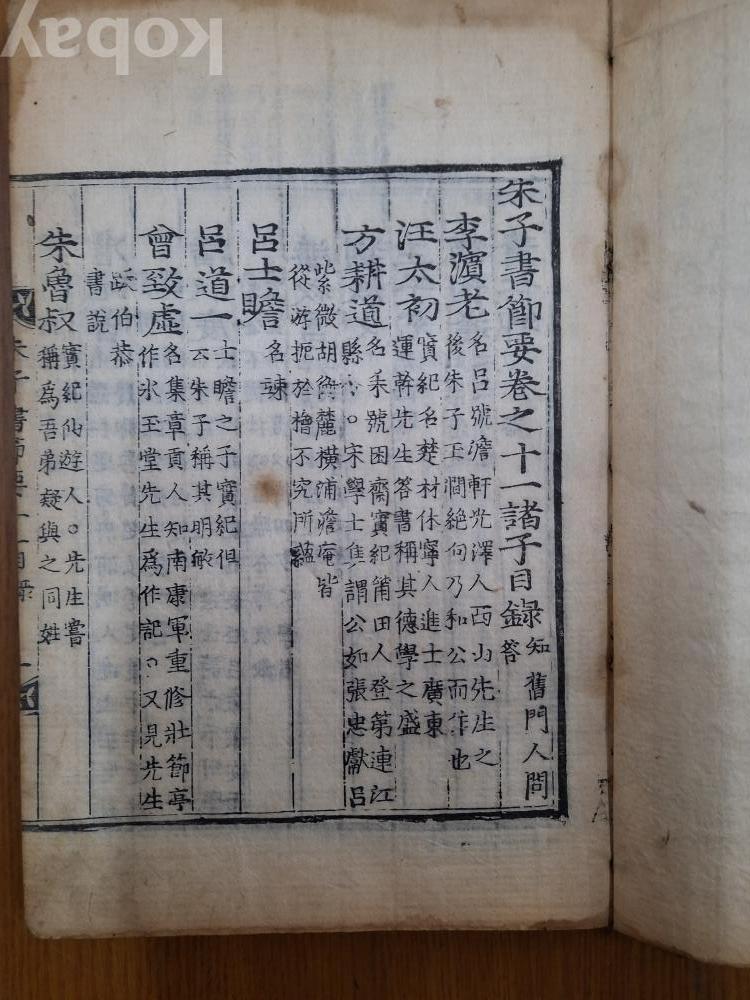 朱子書節要卷之十一諸子目錄 知舊門人問
答
李濱老 名呂號澹軒光澤人西山先生之
後朱子玉澗絕句乃和公而作也
汪太初 實紀名楚材休寧人進士廣東
運幹先生答書稱其德學之盛
方耕道 名耒號困齋實紀莆田人登第連江
縣 宋學士 謂公如張忠獻呂
紫微胡 麓橫浦澹庵皆
從游扼於檜不究所蘊
呂士瞻 名竦
呂道一 士瞻之子實紀但
云朱子稱其明敏
曾致虛 名集章貢人知南康軍重修壯節亭
作氷玉堂先生爲作記。又見先生
跋伯恭
書說
朱魯叔 實紀仙遊人。先生嘗
稱爲吾弟疑與之同姓
朱子書節要十一目錄 一
kobay